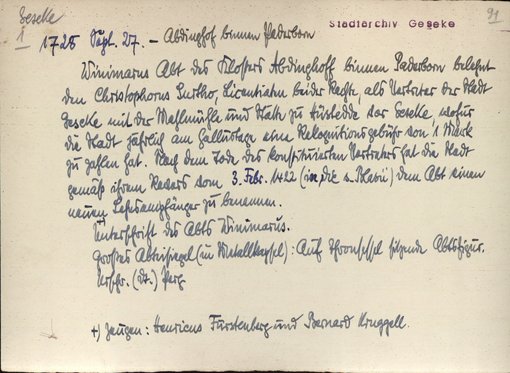 Geseke
1
Stadtarchiv Geseke
91
1725 Sept. 27. – Abdinghof binnen Paderborn
Winimarus Abt des Klosters Abdinghoff binnen Paderborn belehnt
den Christophorus Surtho, Licentiatm beider Rechte, als Vertreter der Stadt
Geseke mit der Mahlmühle und Stätte zu Hüstedde vor Geseke, wofür
die Stadt jährlich am Gallustage eine Rekognitionsgebühr von 1 Mark
zu zahlen hat. Nach dem Tode des konstituierten Vertreters hat die Stadt
gemäß ihrem Revers vom 3. Febr. 1422 (in die s. Blasii) dem Abt einen
neuen Lehnsempfänger zu benennen.
Unterschrift des Abts Winimarus.
Großes Abteisiegel (in Metallkapsel): Auf Thronsessel sitzende Abtsfigur.
Urschr. (Dt.) Perg
+) Zeugen: Henricus Fürstenberg und Bernard Kruggell.